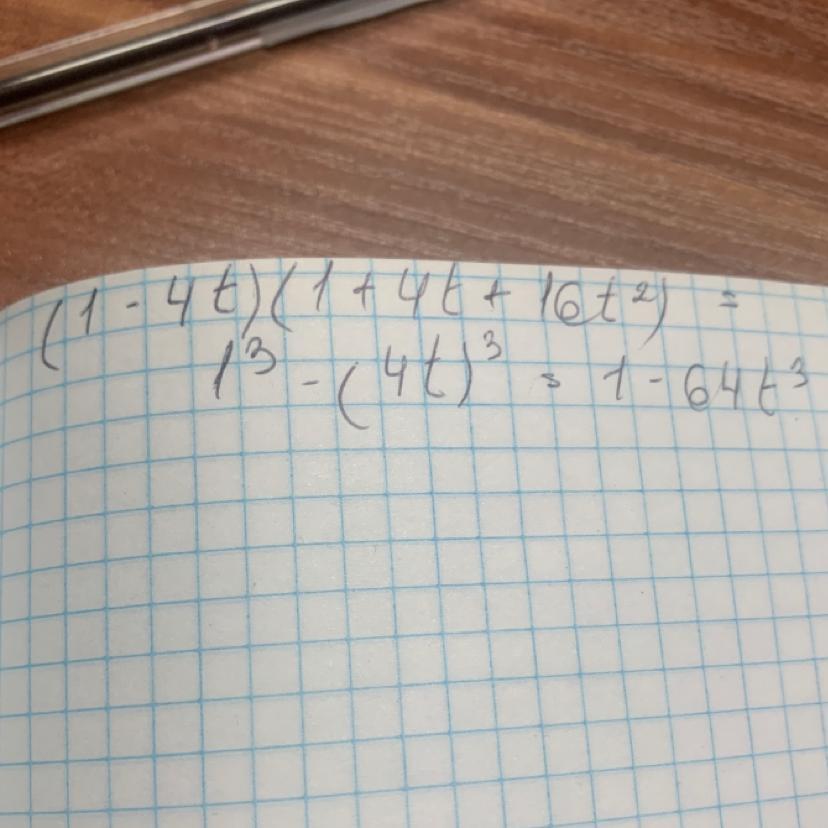 (1 - 4t)(1 + 4t + 16t²) =
1³ - (4t)³ = 1 - 64t³